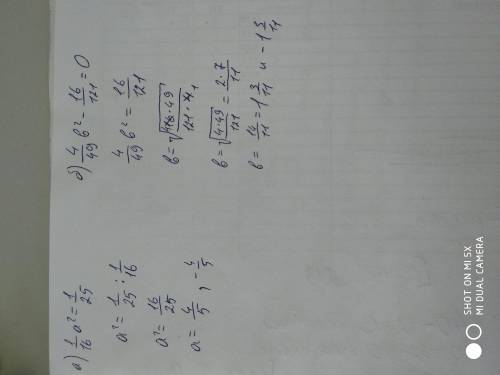 а) 1/16 a² = 1/25
a² = 1/25 : 1/16
a² = 16/25
a = 4/5 , - 4/5
б) 4/49 b² - 16/121 = 0
4/49 b² = 16/121
b = √(16·49/121·4)
b = √(4·49/121) = 2·7/11
b = 14/11 = 1 3/11 и - 1 3/11
SHOT ON MI 5X
MI DUAL CAMERA